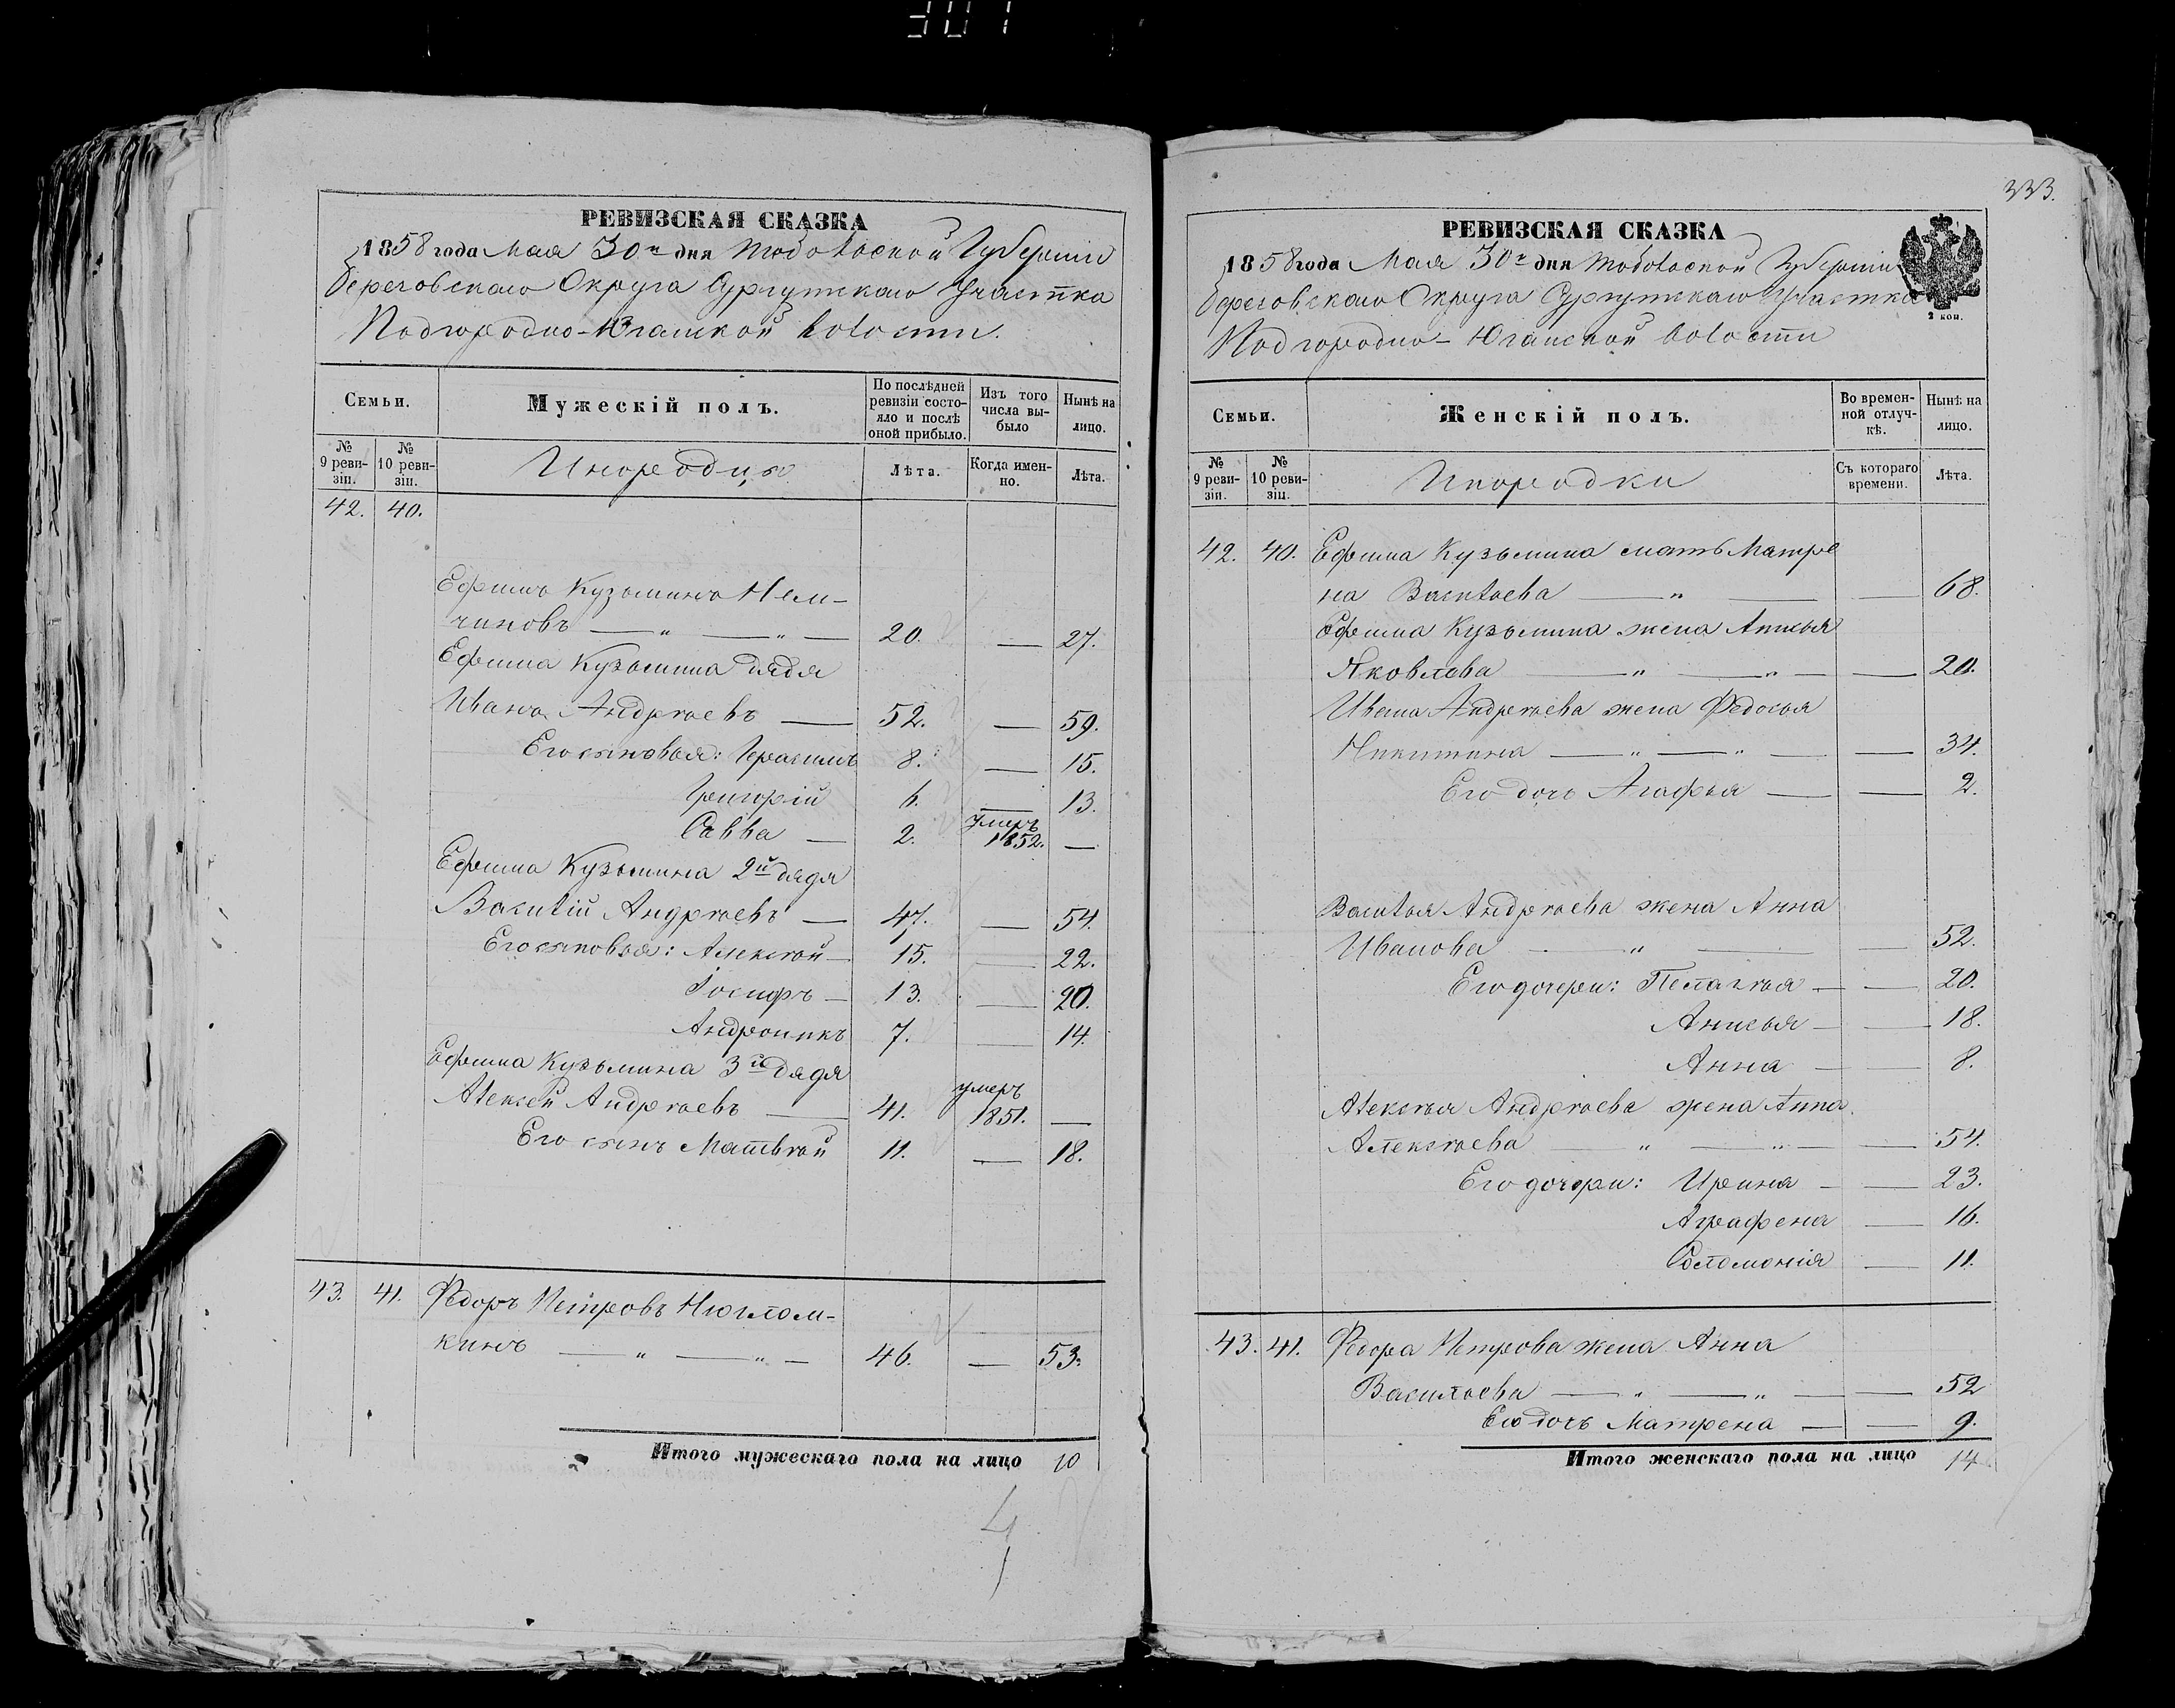 301
РЕВИЗСКАЯ СКАЗКА
1858 года Мая 30го дня Тобольской Губерніи
Березовскаго Округа Сургутскаго Участка
Подгородно-Юганской волости.
Семьи.
Мужескій полъ.
По послѣдней ревизіи состояло и послѣ оной прибыло.
Изъ того числа выбыло
Нынѣ на лицо.
№ 9 ревизіи.
№ 10 ревизіи.
Инородцы
Лѣта.
Когда именно.
Лѣта.
42. 40.
Ефимъ Кузьминъ Нем-
чиновъ — " — " — 20. — 27.
Ефима Кузьмина дядя
Иванъ Андрѣевъ — 52. — 59.
Его сыновья: Герасимъ 8. — 15.
Григорій 6. — 13.
Савва — 2. умеръ 1852. —
Ефима Кузьмина 2й дядя
Василій Андрѣевъ — 47. — 54.
Его сыновья: Алексѣй — 15. — 22.
Іосифъ — 13. — 20.
Андроникъ 7. — 14.
Ефима Кузьмина 3й дядя
Алексѣй Андрѣевъ — 41. умеръ 1851. —
Его сынъ Матвѣй 11. — 18.
43. 41. Федоръ Петровъ Нюглом-
кинъ — " — " — 46. — 53.
Итого мужескаго пола на лицо 10
333.
РЕВИЗСКАЯ СКАЗКА
1858 года Мая 30го дня Тобольской Губерніи
Березовскаго Округа Сургутскаго Участка
2 коп.
Подгородно-Юганской волости
Семьи.
Женскій полъ.
Во временной отлучкѣ.
Нынѣ на лицо.
№ 9 ревизіи.
№ 10 ревизіи.
Инородки
Съ котораго времени.
Лѣта.
42. 40. Ефима Кузьмина мать Матре
на Васильева — " — — 68.
Ефима Кузьмина жена Анисья
Яковлева — " — " — — 20.
Ивана Андрѣева жена Федосья
Никитина — " — " — — 34.
Его дочь Агафья — — 2.
Василья Андрѣева жена Анна
Иванова — " — — 52.
Его дочери: Пелагѣя — — 20.
Анисья — — 18.
Анна — — 8.
Алексѣя Андрѣева жена Анна
Алексѣева — " — " — — 54.
Его дочери: Ирина — — 23.
Аграфена — 16.
Соломонія — 11.
43. 41. Федора Петрова жена Анна
Васильева — " — " — — 52
Его дочь Матрена — — 9.
Итого женскаго пола на лицо 14